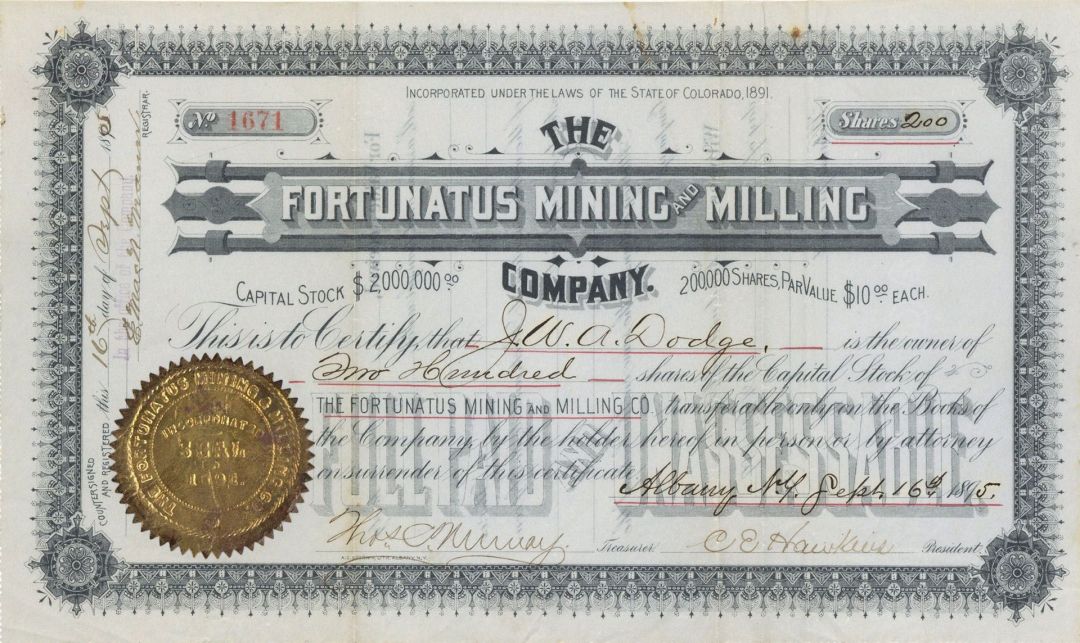 INCORPORATED UNDER THE LAWS OF THE STATE OF COLORADO, 1891.
No 1671
Shares 200
THE
FORTUNATUS MINING AND MILLING
COMPANY.
CAPITAL STOCK $2,000,000.00
200,000 SHARES, PAR VALUE $10.00 EACH.
This is to Certify, that J. W. A. Dodge, is the owner of
Two Hundred shares of the Capital Stock of
THE FORTUNATUS MINING AND MILLING CO. transferable only on the Books of
the Company, by the holder hereof in person or by attorney
on surrender of this certificate
FULL PAID AND UNASSESSABLE
Albany, N.Y. Sept. 16th 1895.
Thos. C. Murray. Treasurer.
C E Hawkins President.
COUNTERSIGNED
AND REGISTERED this 16th day of Sept 1895
REGISTRAR.
THE FORTUNATUS MINING & MILLING CO.
INCORPORATED
SEAL
1891.